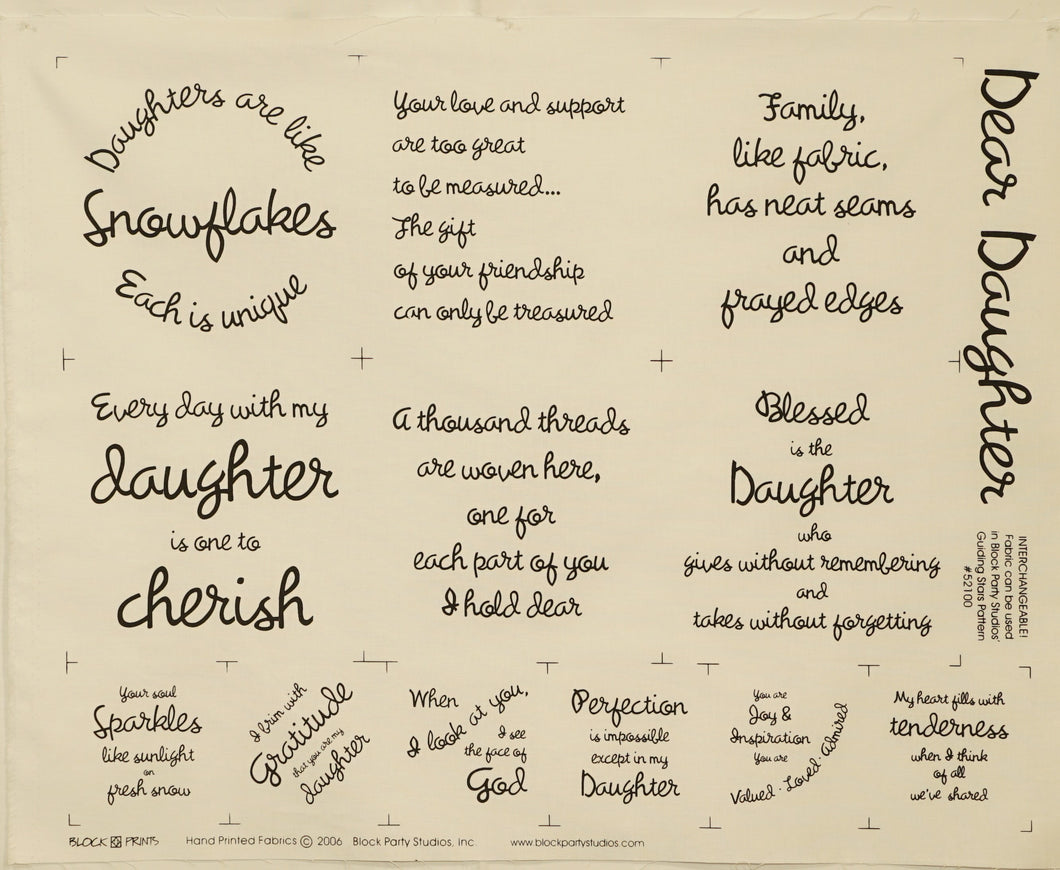 Daughters are like
Snowflakes
Each is unique
Your love and support
are too great
to be measured...
The gift
of your friendship
can only be treasured
Family,
like fabric,
has neat seams
and
frayed edges
Dear Daughter
Every day with my
daughter
is one to
cherish
A thousand threads
are woven here,
one for
each part of you
I hold dear
Blessed
is the
Daughter
who
gives without remembering
and
takes without forgetting
INTERCHANGEABLE!
Fabric can be used
in Block Party Studios'
Guiding Stars Pattern
#52100
Your soul
Sparkles
like sunlight
on
fresh snow
I brim with
Gratitude
that you are my
daughter
When
I look at you,
I see
the face of
God
Perfection
is impossible
except in my
Daughter
You are
Joy &
Inspiration
You are
Valued · Loved · Admired
My heart fills with
tenderness
when I think
of all
we've shared
BLOCK PRINTS Hand Printed Fabrics © 2006 Block Party Studios, Inc. www.blockpartystudios.com